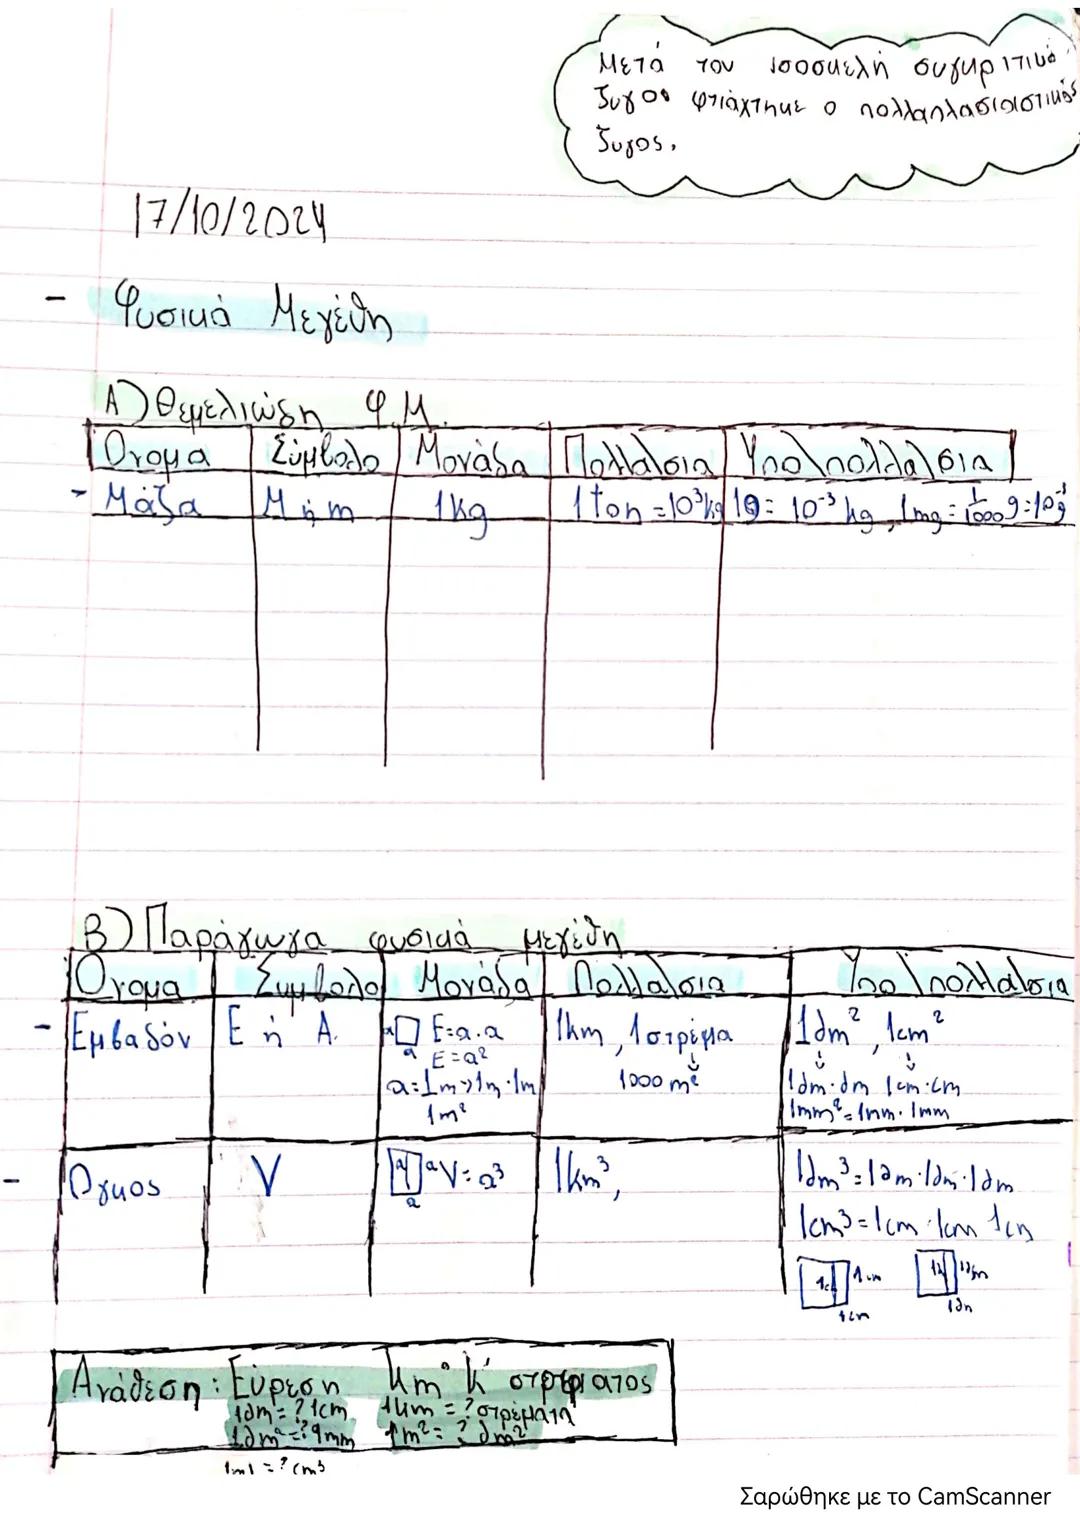 Μετά τον ισοσκελή συγκριτικό
ζυγος φτιάχτηκε ο πολλαπλασιαστικός
ζυγος.
17/10/2024
- Φυσικά Μεγέθη
Α) Θεμελιώδη Φ.Μ.
Όνομα Σύμβολο Μονάδα Πολλ/σια Υπο\πολλα\σια
- Μάζα M ή m 1kg 1 ton = 10³kg 1g = 10⁻³ kg, 1mg = 1/1000 g = 10⁻³g
Β) Παράγωγα φυσικά μεγέθη
Όνομα Συμβολο Μονάδα Πολλα\σια Υπο\πολλα\σια
- Εμβαδόν E ή A. a a E=a.a 1km, 1στρέμα 1dm², 1cm²
E=a² 1000 m² 1dm·dm 1cm·cm
a=1m>1m·1m 1mm²=1mm·1mm
1m²
- Ογκος V a a a V=a³ 1km³, 1dm³=1dm·1dm·1dm
1cm³=1cm·1cm 1cm
1cm 1cm 1dm
1cm 1dm
Ανάθεση: Εύρεση km² κ'
1dm=?1cm 1km=?στρέματα
1dm²=?1mm 1m²=?dm²
1ml=?cm³
Σαρώθηκε με το CamScanner